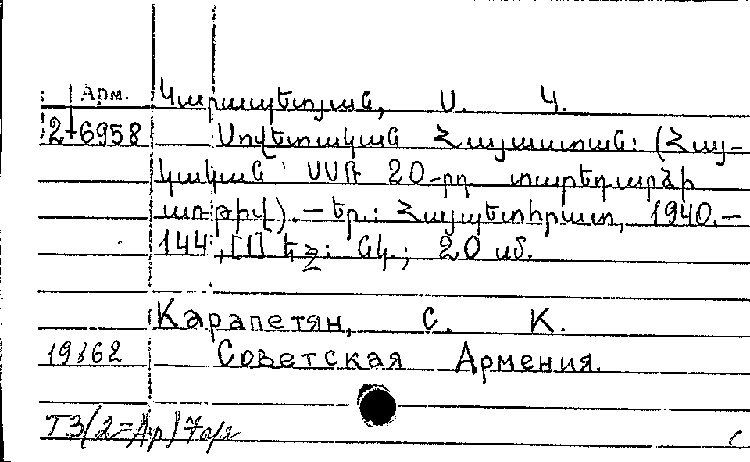 Арм. Կարապետյան, Ս. Կ.
2-6958 Սովետական Հայաստան: (Հայ-
կական ՍՍՌ 20-րդ տարեդարձի
առթիվ). — Եր.: Հայպետհրատ, 1940.—
144, [1] եջ: նկ.; 20 սմ.
Карапетян, С. К.
19362 Советская Армения.
ТЗ(2=Ар)7